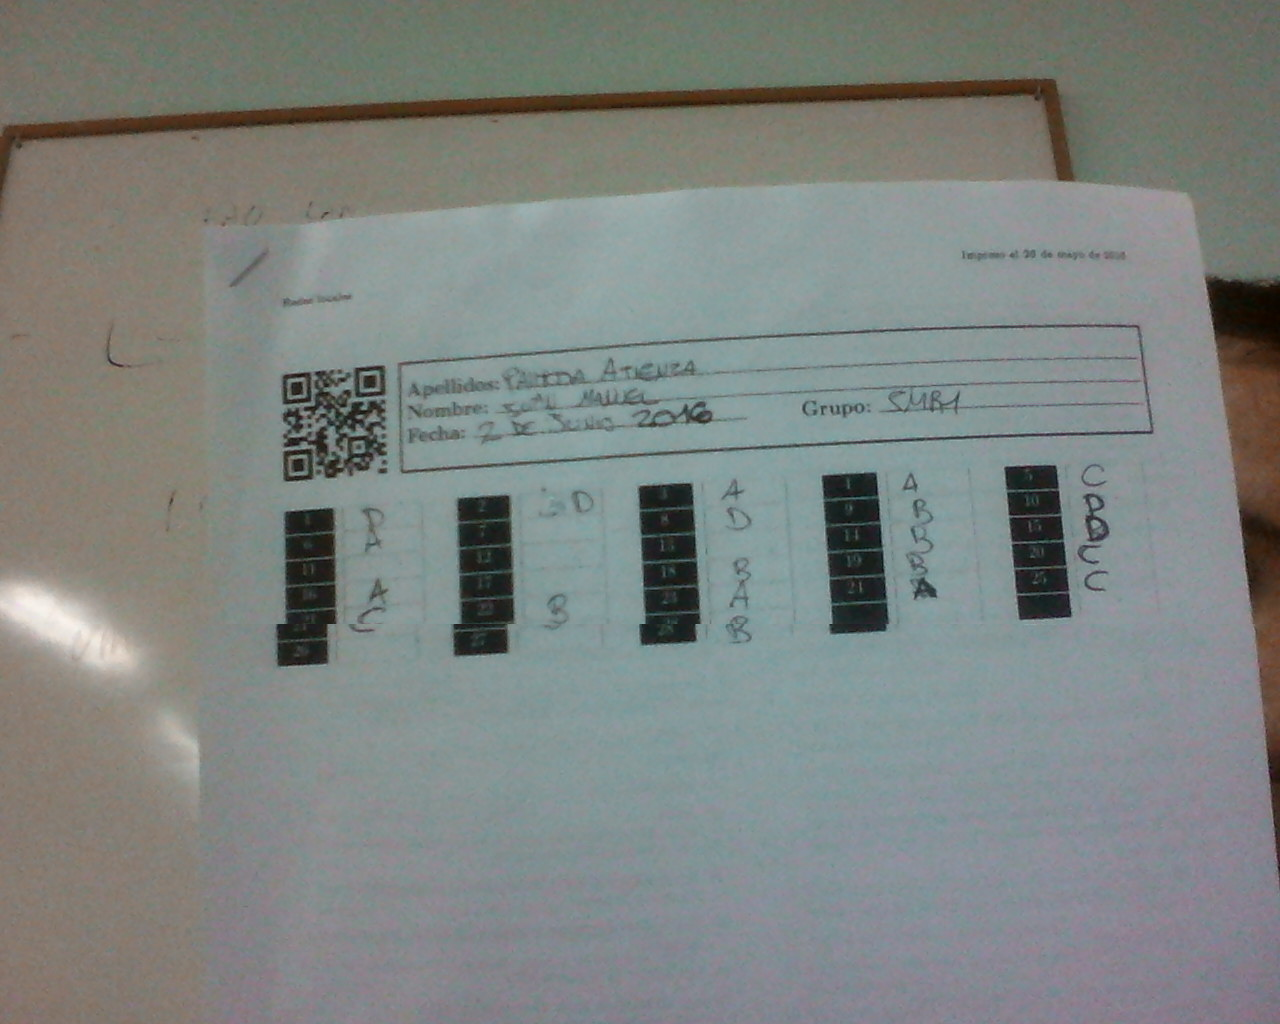 Impreso el 26 de mayo de 2016
Redes locales
Apellidos: ATIENZA
Nombre: JUAN MANUEL
Fecha: 2 DE JUNIO 2016 Grupo: SMR1
1 D 2 D 3 A 4 A 5 C
6 A 7 8 D 9 B 10 D
11 12 13 14 B 15
16 A 17 18 B 19 B 20 C
21 C 22 B 23 A 24 A 25 C
26 27 28 B